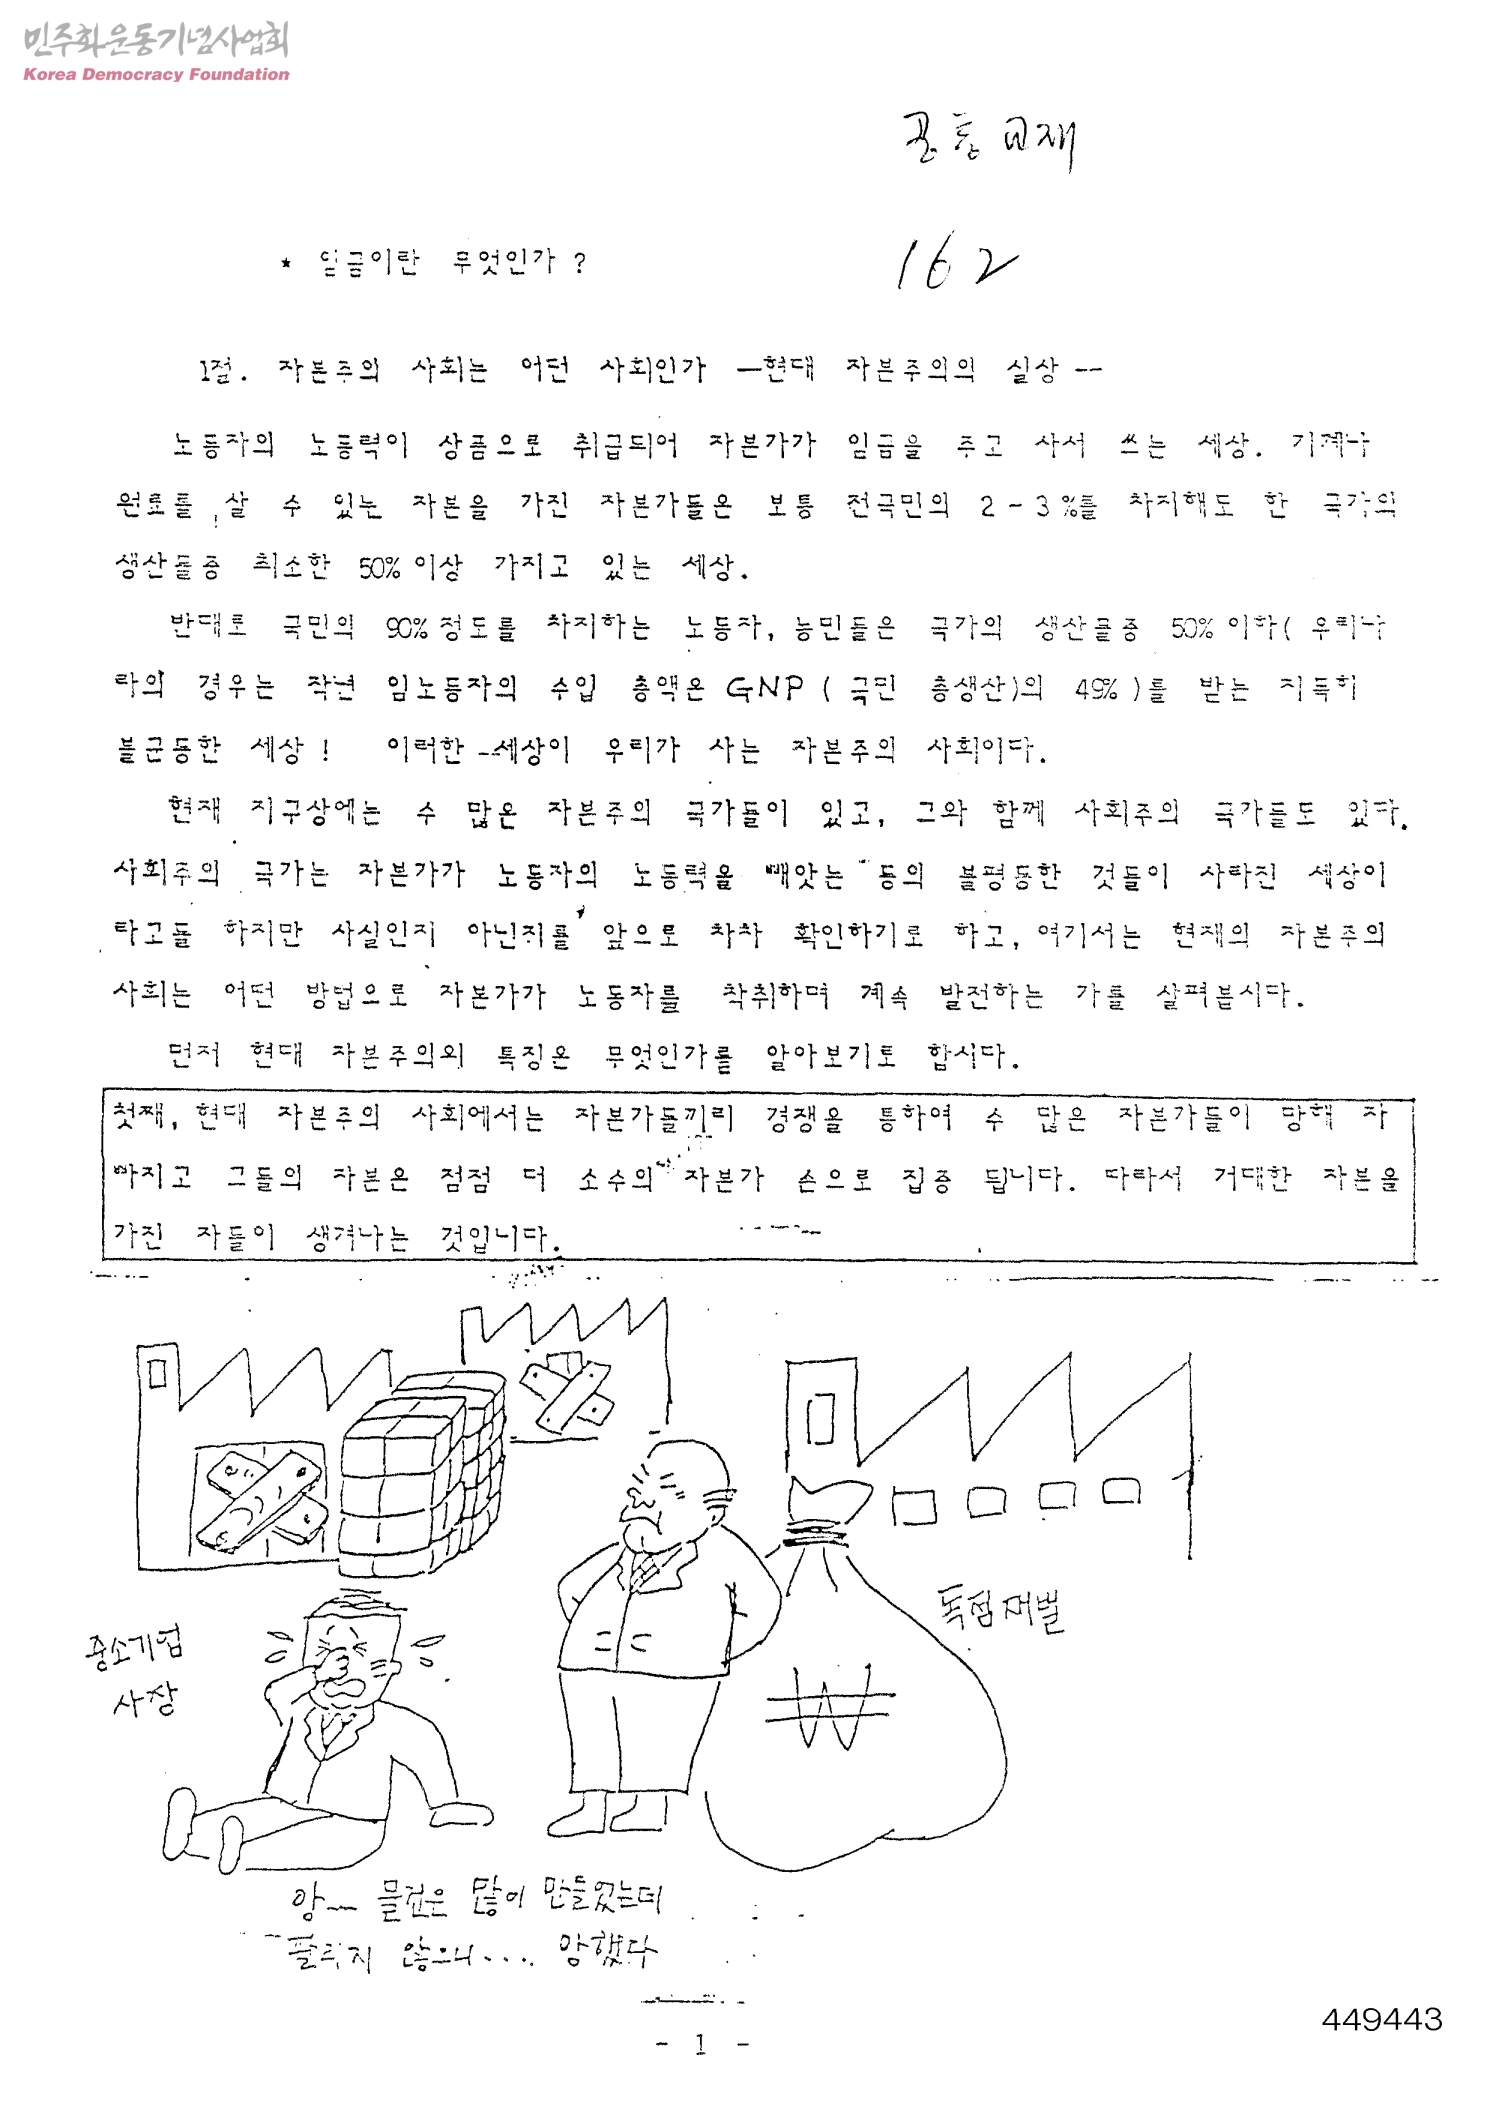 민주화운동기념사업회
Korea Democracy Foundation
공동교재
162
* 임금이란 무엇인가?
1절. 자본주의 사회는 어떤 사회인가 —현대 자본주의의 실상--
노동자의 노동력이 상품으로 취급되어 자본가가 임금을 주고 사서 쓰는 세상. 기계나
원료를 살 수 있는 자본을 가진 자본가들은 보통 전국민의 2-3%를 차지해도 한 국가의
생산물중 최소한 50%이상 가지고 있는 세상.
반대로 국민의 90%정도를 차지하는 노동자, 농민들은 국가의 생산물중 50%이하( 우리나
라의 경우는 작년 임노동자의 수입 총액은 GNP ( 국민 총생산)의 49% )를 받는 지독히
불균등한 세상! 이러한 세상이 우리가 사는 자본주의 사회이다.
현재 지구상에는 수 많은 자본주의 국가들이 있고, 그와 함께 사회주의 국가들도 있다.
사회주의 국가는 자본가가 노동자의 노동력을 빼앗는 등의 불평등한 것들이 사라진 세상이
라고들 하지만 사실인지 아닌지를 앞으로 차차 확인하기로 하고, 여기서는 현재의 자본주의
사회는 어떤 방법으로 자본가가 노동자를 착취하며 계속 발전하는 가를 살펴봅시다.
먼저 현대 자본주의의 특징은 무엇인가를 알아보기로 합시다.
첫째, 현대 자본주의 사회에서는 자본가들끼리 경쟁을 통하여 수 많은 자본가들이 망해 자
빠지고 그들의 자본은 점점 더 소수의 자본가 손으로 집중 됩니다. 따라서 거대한 자본을
가진 자들이 생겨나는 것입니다.
중소기업
사장
독점재벌
₩
앙— 물건은 많이 만들었는데
팔리지 않으니.... 망했다
- 1 -
449443